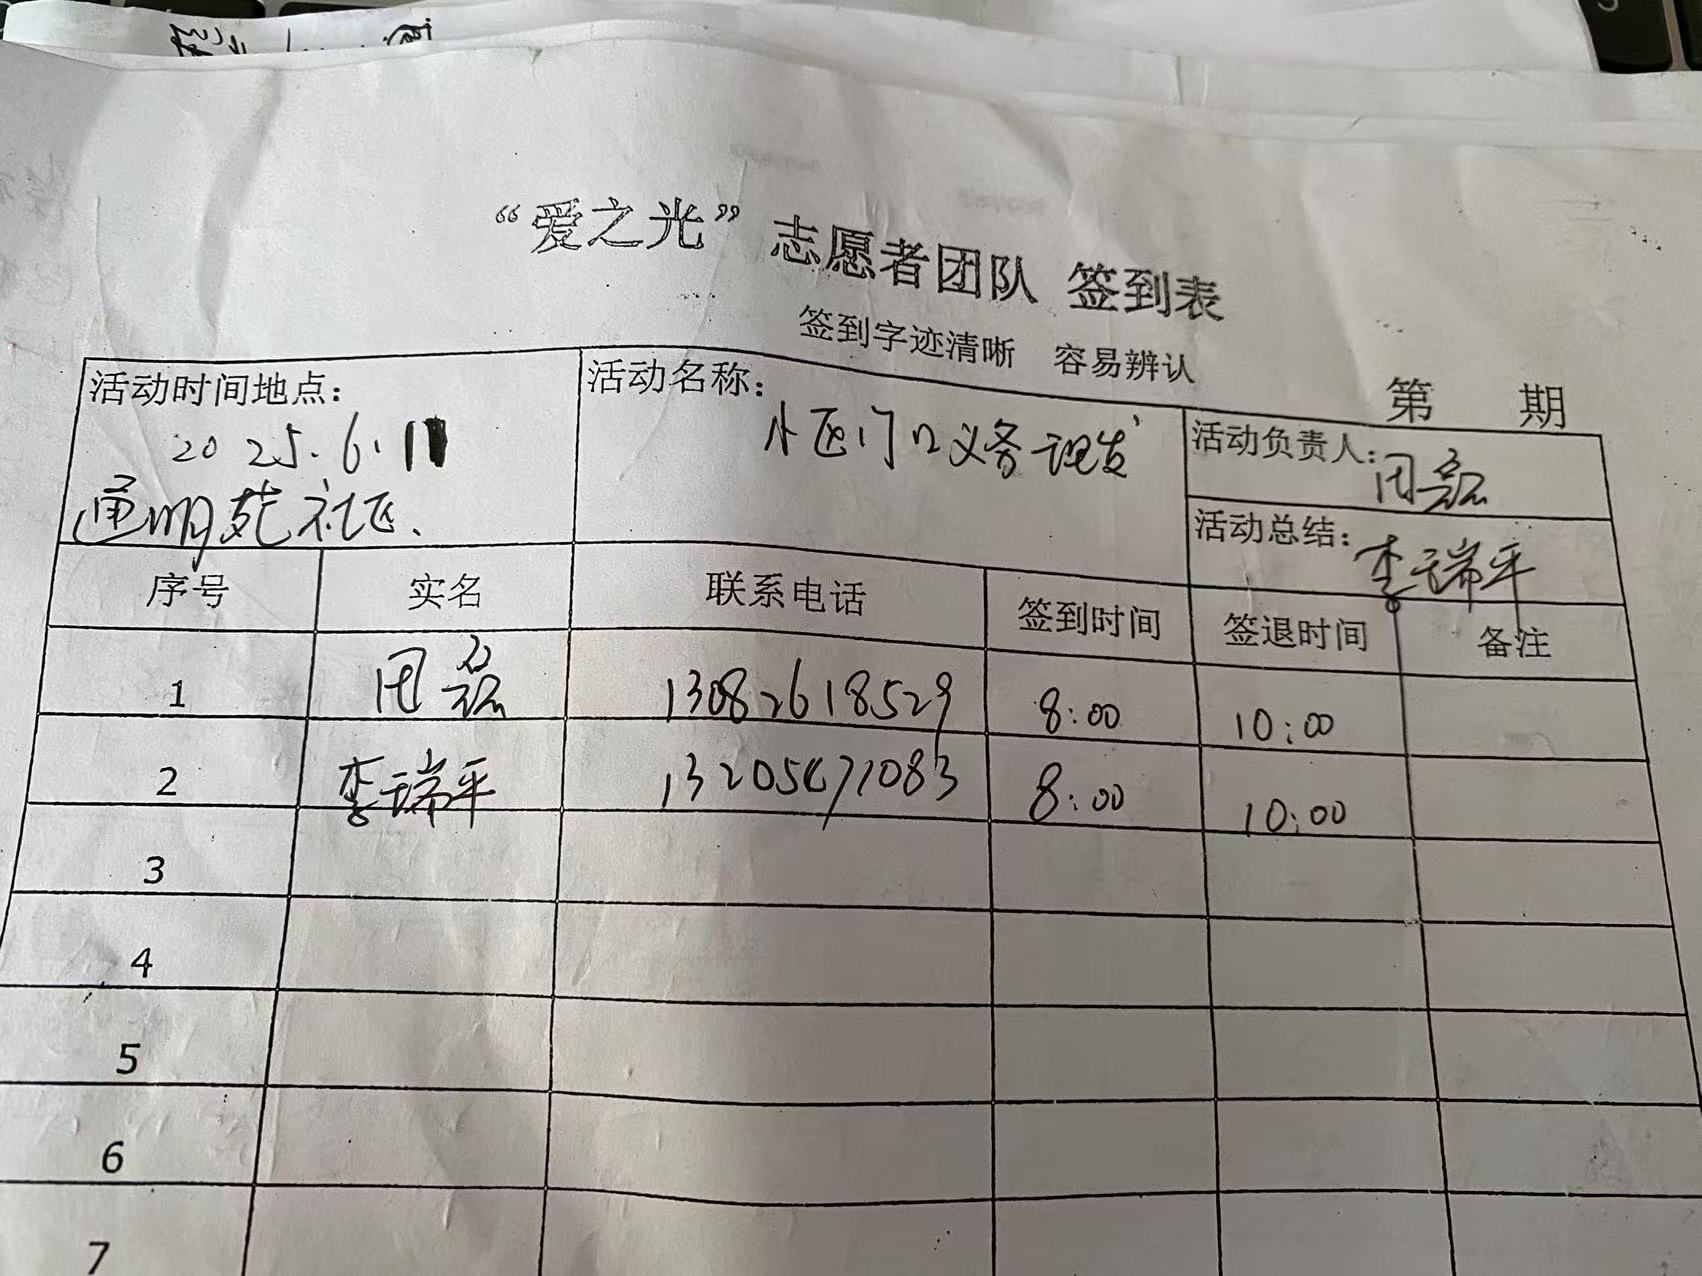 “爱之光”志愿者团队 签到表
签到字迹清晰 容易辨认
第 期
活动时间地点：
2025.6.11
通明苑社区.
活动名称：
小区门口义务理发
活动负责人：田磊
活动总结：李瑞平
序号 实名 联系电话 签到时间 签退时间 备注
1 田磊 13082618529 8:00 10:00
2 李瑞平 8:00 10:00
3
4
5
6
7